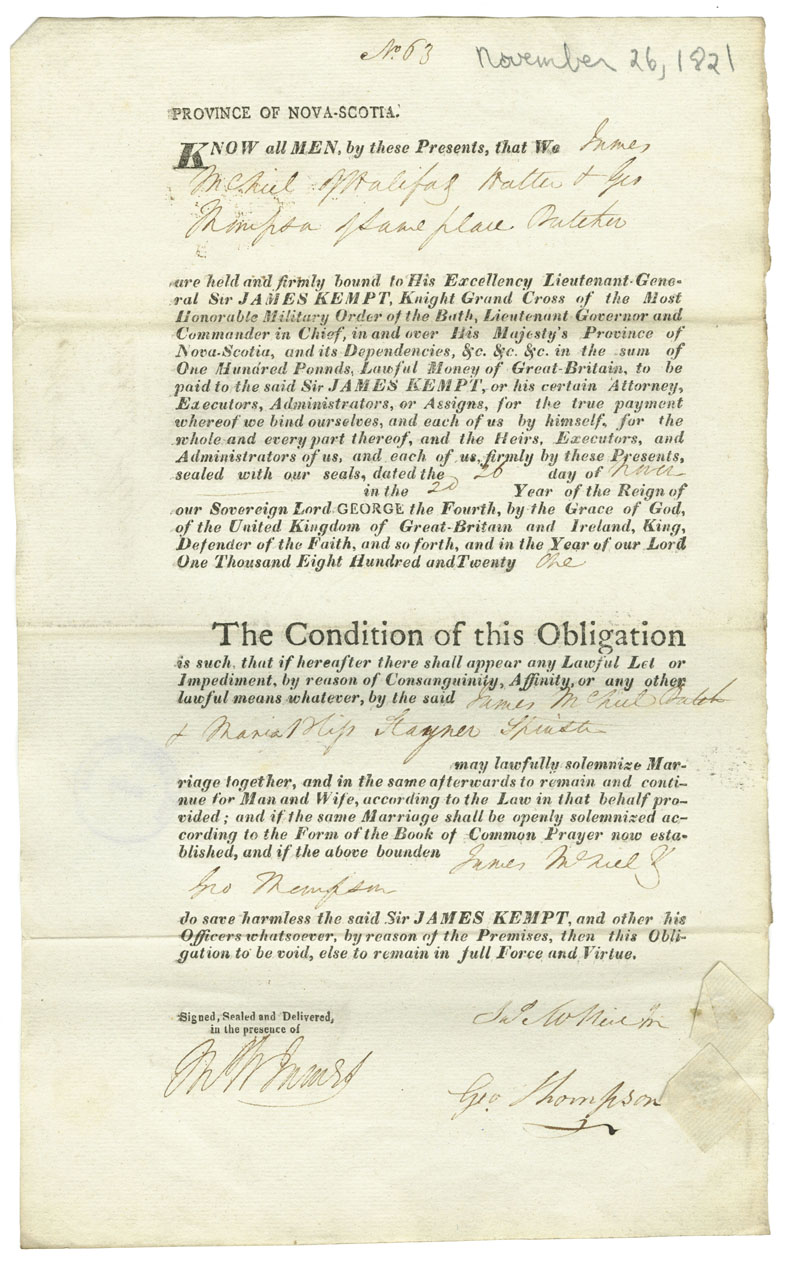 No 63
November 26, 1821
PROVINCE OF NOVA-SCOTIA.
KNOW all MEN, by these Presents, that We James
McNiel of Halifax Hatter & Geo
Thompson of same place Butcher
are held and firmly bound to His Excellency Lieutenant-Gene-
ral Sir JAMES KEMPT, Knight Grand Cross of the Most
Honorable Military Order of the Bath, Lieutenant Governor and
Commander in Chief, in and over His Majesty's Province of
Nova-Scotia, and its Dependencies, &c. &c. &c. in the sum of
One Hundred Ponnds, Lawful Money of Great-Britain, to be
paid to the said Sir JAMES KEMPT, or his certain Attorney,
Executors, Administrators, or Assigns, for the true payment
whereof we bind ourselves, and each of us by himself, for the
whole and every part thereof, and the Heirs, Executors, and
Administrators of us, and each of us, firmly by these Presents,
sealed with our seals, dated the 26 day of Novr
in the 2d Year of the Reign of
our Sovereign Lord GEORGE the Fourth, by the Grace of God,
of the United Kingdom of Great-Britain and Ireland, King,
Defender of the Faith, and so forth, and in the Year of our Lord
One Thousand Eight Hundred and Twenty One
The Condition of this Obligation
is such, that if hereafter there shall appear any Lawful Let or
Impediment, by reason of Consanguinity, Affinity, or any other
lawful means whatever, by the said James McNiel
& Maria Bliss Stayner Spinster
may lawfully solemnize Mar-
riage together, and in the same afterwards to remain and conti-
nue for Man and Wife, according to the Law in that behalf pro-
vided; and if the same Marriage shall be openly solemnized ac-
cording to the Form of the Book of Common Prayer now esta-
blished, and if the above bounden James McNiel &
Geo Thompson
do save harmless the said Sir JAMES KEMPT, and other his
Officers whatsoever, by reason of the Premises, then this Obli-
gation to be void, else to remain in full Force and Virtue.
Signed, Sealed and Delivered,
in the presence of
Jas McNiel
Geo. Thompson